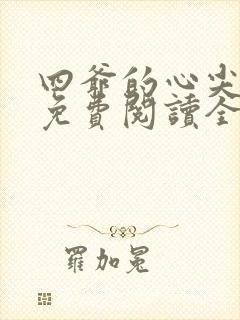 四爺的心尖
免費閱讀全
羅加冕